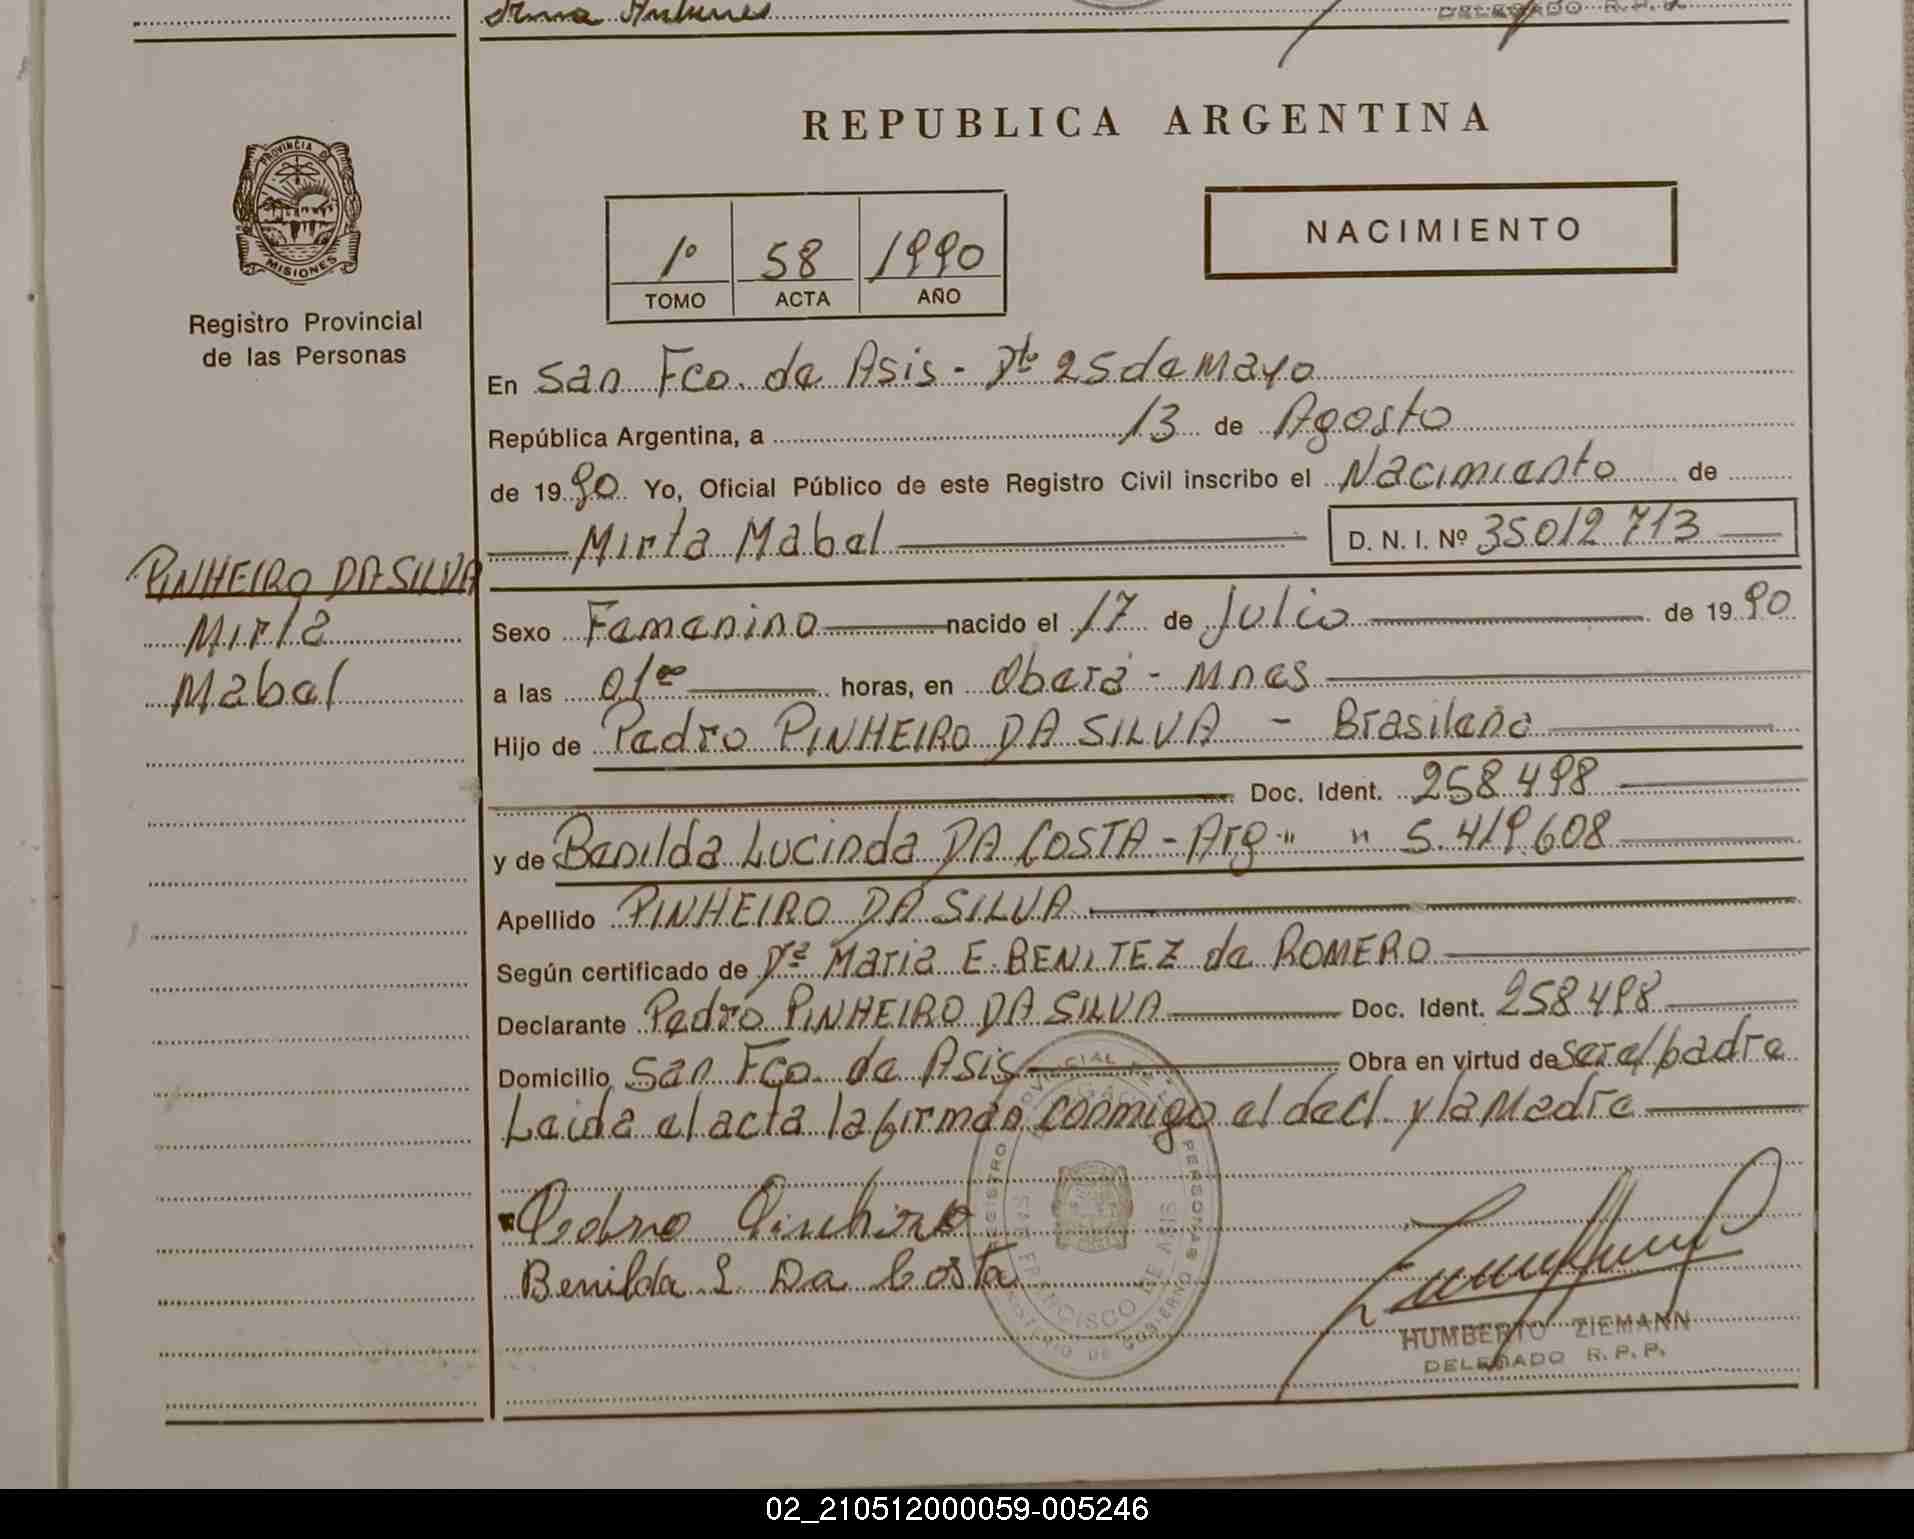 DELEGADO R.P.P.
PROVINCIA DE
MISIONES
Registro Provincial
de las Personas
REPUBLICA ARGENTINA
1º 58 1990
TOMO ACTA AÑO
NACIMIENTO
En San Fco. de Asis - Dto 25 de Mayo
República Argentina, a 13 de Agosto
de 1990 Yo, Oficial Público de este Registro Civil inscribo el Nacimiento de
Mirta Mabel D. N. I. Nº 35012713
PINHEIRO DA SILVA
Mirta
Mabel
Sexo Femenino nacido el 17 de Julio de 1990
a las 01ºº horas, en Oberá - Mnes
Hijo de Pedro PINHEIRO DA SILVA - Brasileño
Doc. Ident. 258.498
y de Benilda Lucinda DA COSTA - Arg " " 5.419.608
Apellido PINHEIRO DA SILVA
Según certificado de Dra Maria E. BENITEZ de ROMERO
Declarante Pedro PINHEIRO DA SILVA Doc. Ident. 258.498
Domicilio San Fco. de Asis Obra en virtud de ser el padre
Leida el acta la firman conmigo el decl. y la Madre
Pedro
Benilda L Da Costa
REGISTRO PROVINCIAL DE LAS PERSONAS
SAN FRANCISCO DE ASIS
MINISTERIO DE GOBIERNO
HUMBERTO ZIEMANN
DELEGADO R.P.P.
02_210512000059-005246